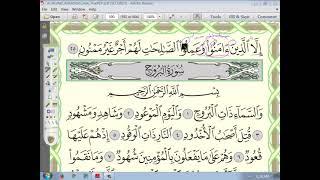 إِلَّا الَّذِينَ ءَامَنُوا وَعَمِلُوا الصَّالِحَاتِ لَهُمْ أَجْرٌ غَيْرُ مَمْنُونٍ ٢٥
سُورَةُ الْبُرُوجِ
بِسْمِ اللَّهِ الرَّحْمَٰنِ الرَّحِيمِ
وَالسَّمَاءِ ذَاتِ الْبُرُوجِ ١ وَالْيَوْمِ الْمَوْعُودِ ٢ وَشَاهِدٍ وَمَشْهُودٍ
٣ قُتِلَ أَصْحَابُ الْأُخْدُودِ ٤ النَّارِ ذَاتِ الْوَقُودِ ٥ إِذْ هُمْ عَلَيْهَا
قُعُودٌ ٦ وَهُمْ عَلَىٰ مَا يَفْعَلُونَ بِالْمُؤْمِنِينَ شُهُودٌ ٧ وَمَا نَقَمُوا